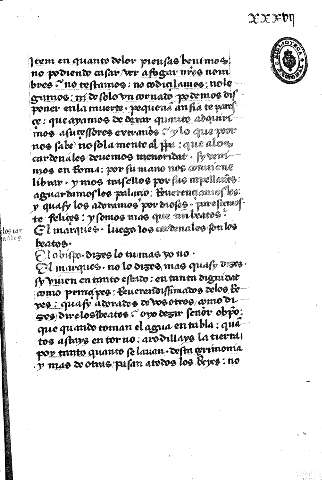 xxxvij
Item en quanto dolor piensas beuimos
no podiendo casar ver a fogar nr̃os nom
bres. no testamos: no codiçilamos: no le
gamos: ni de solo vn cornado podemos dis
poner en la muerte. pequeña ansia te pares
çe: que ayamos de dexar quanto adquiri
mos a suçessores extraños. y lo que peor
nos sabe no sola mente al
cardenales deuemos menoridat. sy veni
mos en Roma: por su mano nos conuiene
librar. y mos
aguardamos los palaçio.
y quasy los adoramos por dioses. paresçemos
te felices: y somos mas que
El marques. luego los cardenales son los
beatos.
El obispo. dizes lo tu mas yo no.
El marques. no lo dizes, mas quasy dizes.
sy viuen en tanto estado: en tanta dignidat
como prinçipes. Reuerendissimados de los Re
yes: quasy adorados de vosotros. como di
zes: dire los beatos. oyo dezir señor obpo:
que quando toman el agua en tabla: que
tos estays en torno. arodillays la tierra
por tanto quanto se lauan. desta çerimonia
y mas de otras pasan a todos los Reyes: no